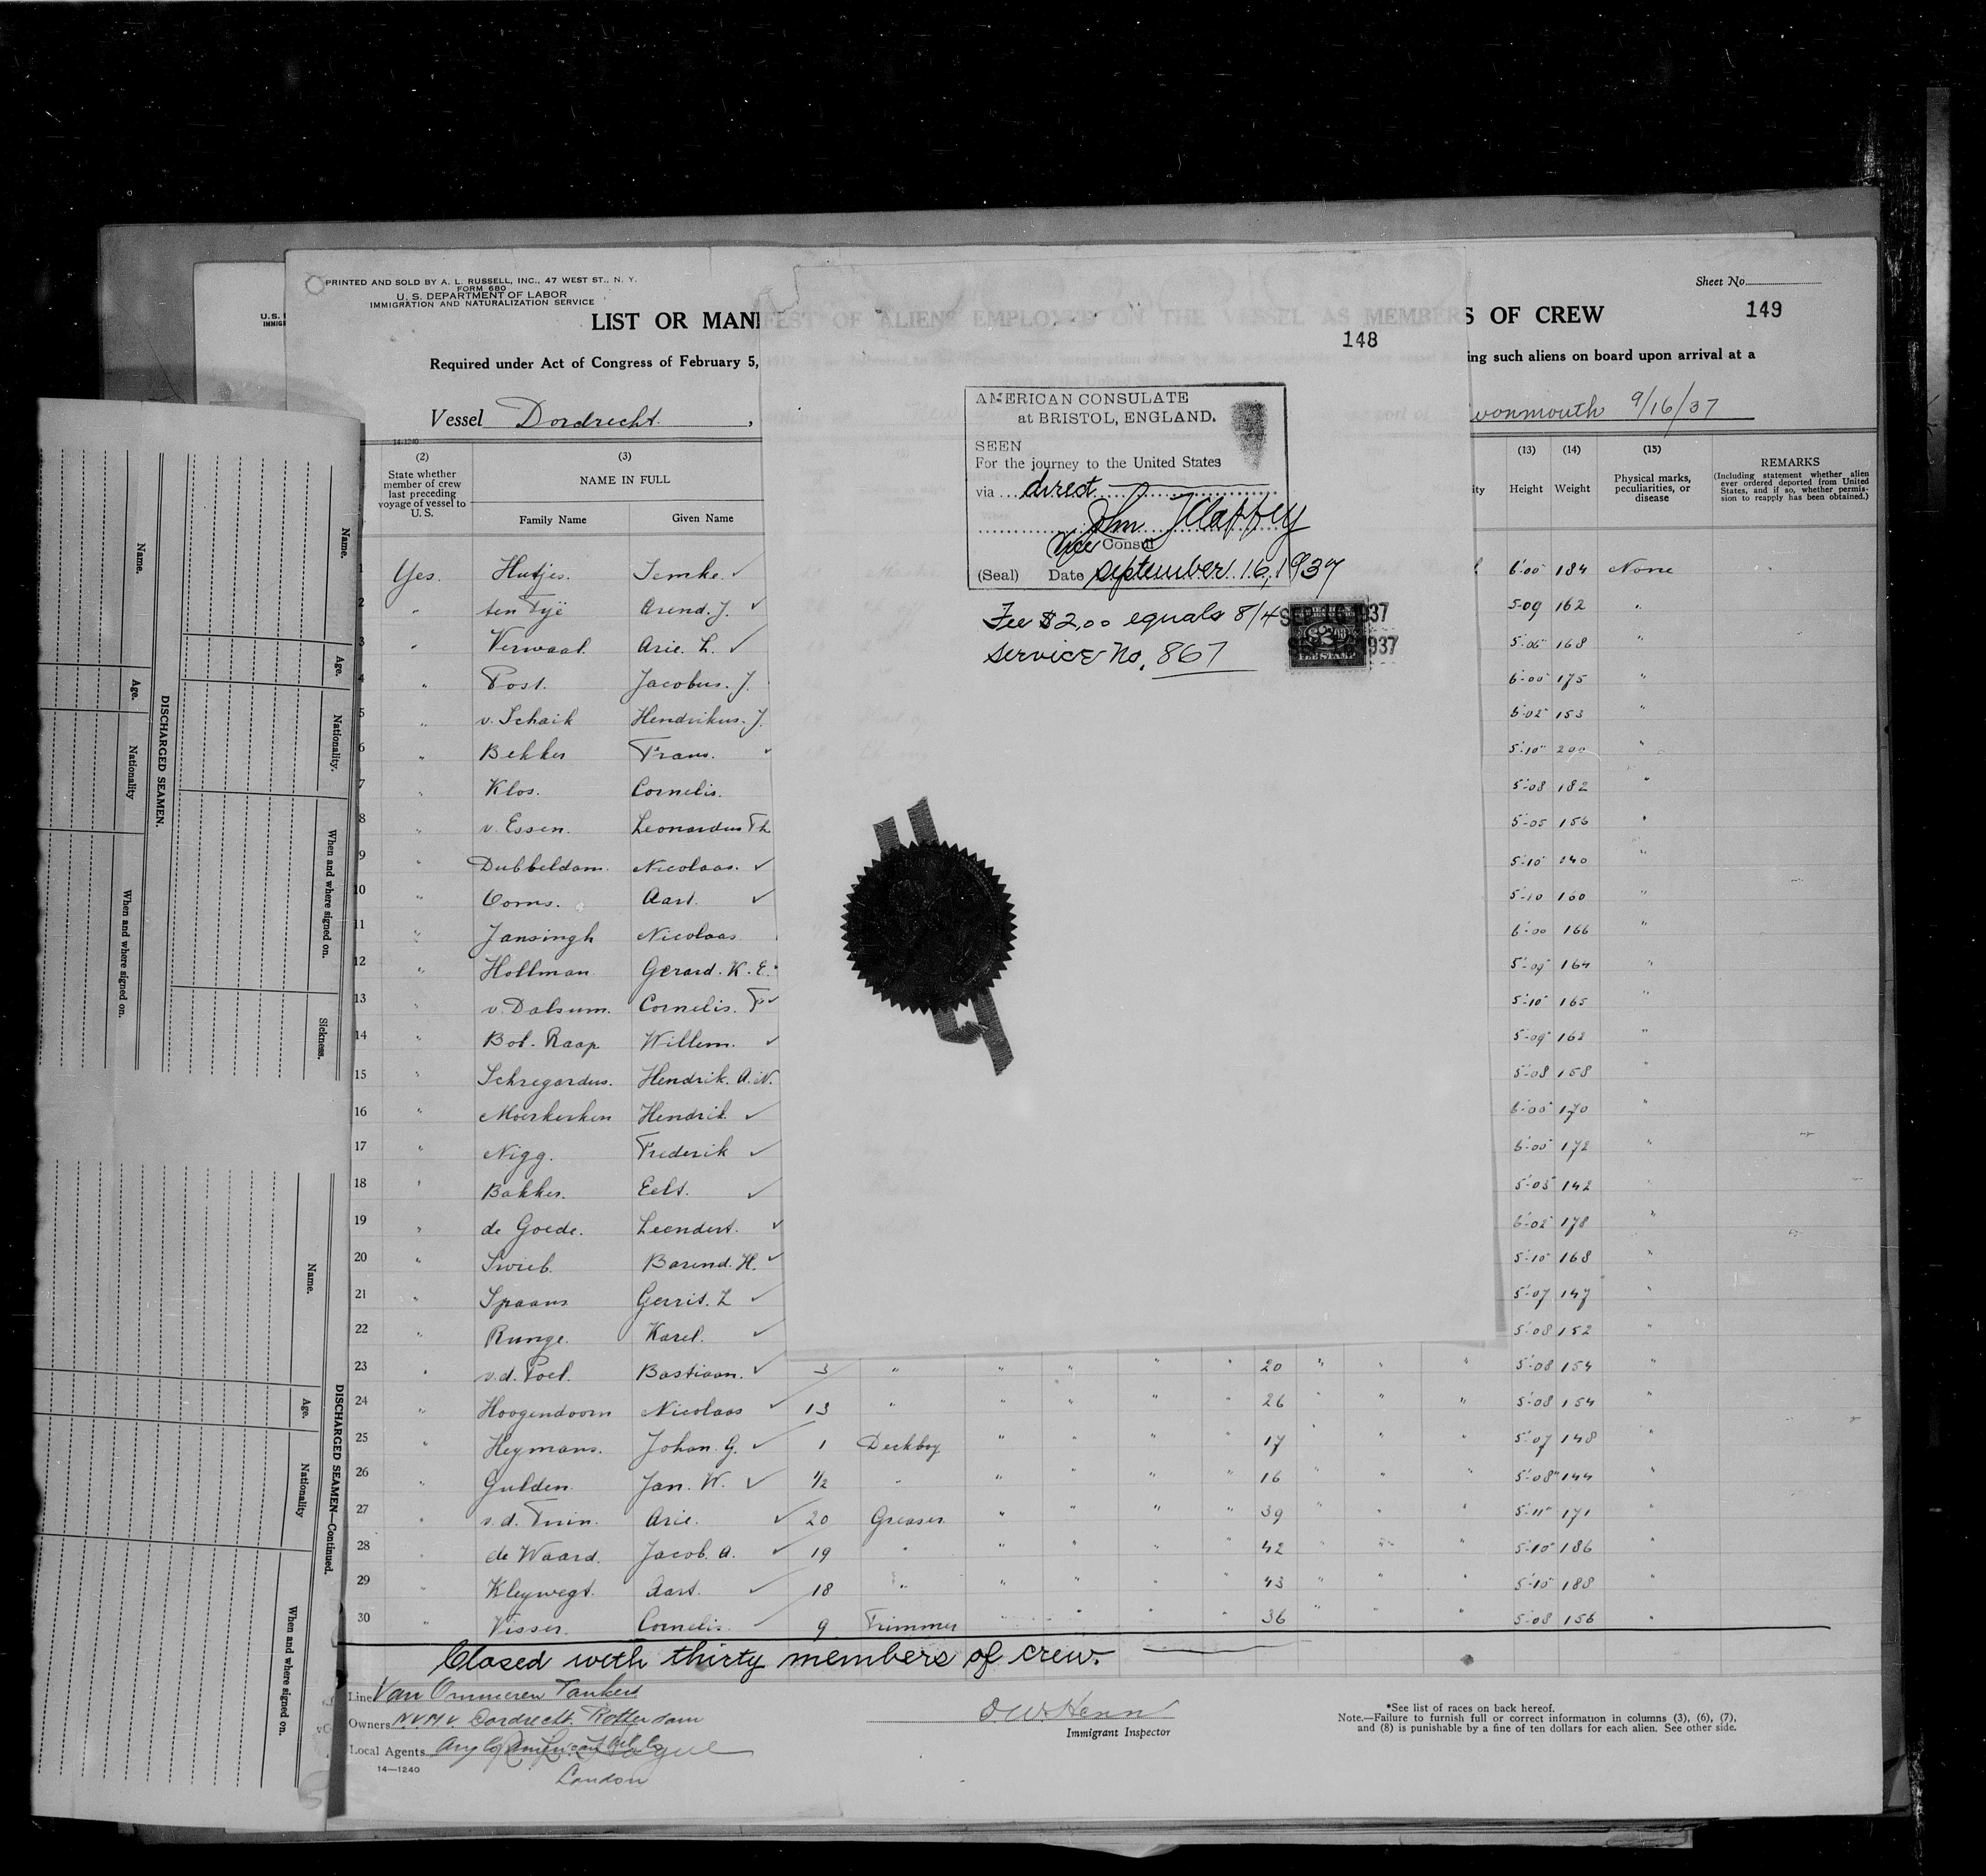 PRINTED AND SOLD BY A. L. RUSSELL, INC., 47 WEST ST., N. Y.
FORM 680
U. S. DEPARTMENT OF LABOR
IMMIGRATION AND NATURALIZATION SERVICE
Sheet No.
149
148
LIST OR MANIFEST OF ALIENS EMPLOYED ON THE VESSEL AS MEMBERS OF CREW
Required under Act of Congress of February 5,
ing such aliens on board upon arrival at a
Vessel Dordrecht.
vonmouth 9/16/37
14-1240
(2) (3) (13) (14) (15)
State whether member of crew last preceding voyage of vessel to U. S.
NAME IN FULL
Family Name Given Name
Height Weight
Physical marks, peculiarities, or disease
REMARKS
(Including statement whether alien ever ordered deported from United States, and if so, whether permission to reapply has been obtained.)
AMERICAN CONSULATE
at BRISTOL, ENGLAND.
SEEN
For the journey to the United States
via direct
John
Vice Consul
(Seal) Date September 16, 1937
Fee $2.00 equals 8/4 SEP 16 1937
Service No. 867
FEE STAMP
1 Yes. Hutjes. Iemke. ✓ 6'00" 184 None
2 " ten Tyë Arend. J. ✓ 5'09 162 "
3 " Verwaal. Arie. L. ✓ 5'06" 168 "
4 " Post. Jacobus. J. 6'00" 175 "
5 " v. Schaik Hendrikus. J. 6'02" 153 "
6 " Bekker Frans. 5'10" 200 "
7 " Klos. Cornelis. 5'08 182 "
8 " v. Essen. Leonardus Th 5'05 156 "
9 " Dubbeldam. Nicolaas. ✓ 5'10" 140 "
10 " Ooms. Aart. ✓ 5'10 160 "
11 " Jansingh Nicolaas 6'00 166 "
12 " Hollman Gerard. K. E. 5'09" 164 "
13 " v. Dalsum. Cornelis. P ✓ 5'10" 165 "
14 " Bot-Raap Willem. ✓ 5'09" 162 "
15 " Schregardus. Hendrik. A. N. 5'08 158 "
16 " Moerkerken Hendrik ✓ 6'00" 170 "
17 " Nigg. Frederik ✓ 6'00" 172 "
18 " Bakker. Eelt. ✓ 5'05" 142 "
19 " de Goede. Leendert. ✓ 6'02" 178 "
20 " Swieb Barend. H. ✓ 5'10" 168 "
21 " Spaans Gerrit. L ✓ 5'07 147 "
22 " Runge. Karel. ✓ 5'08 152 "
23 " v.d. Poel. Bastiaan. ✓ 3 " " " " " 20 " " " 5'08 154 "
24 " Hoogendoorn Nicolaas ✓ 13 " " " " " 26 " " " 5'08 154 "
25 " Heymans. Johan. G. ✓ 1 Deckboy " " " " 17 " " " 5'07 148 "
26 " Gulden. Jan. W. ✓ 1/2 " " " " " 16 " " " 5'08" 144 "
27 " v.d. Tuin. Arie. ✓ 20 Greaser " " " " 39 " " " 5'11" 171 "
28 " de Waard. Jacob. A. ✓ 19 " " " " " 42 " " " 5'10" 186 "
29 " Kleywegt. Aart. ✓ 18 " " " " " 43 " " " 5'10" 188 "
30 " Visser. Cornelis. ✓ 9 Trimmer " " " " 36 " " " 5'08 156 "
Closed with thirty members of crew.
Line Van Ommeren Tankers
Owners N.V. M.V. Dordrecht. Rotterdam
Local Agents Anglo American Oil Co
London
14—1240
Immigrant Inspector
*See list of races on back hereof.
Note.—Failure to furnish full or correct information in columns (3), (6), (7),
and (8) is punishable by a fine of ten dollars for each alien. See other side.
Name. Age. Nationality. When and where signed on. Sickness.
DISCHARGED SEAMEN.
Name. Age. Nationality When and where signed on.
Name. Age. Nationality When and where signed on.
DISCHARGED SEAMEN—Continued.